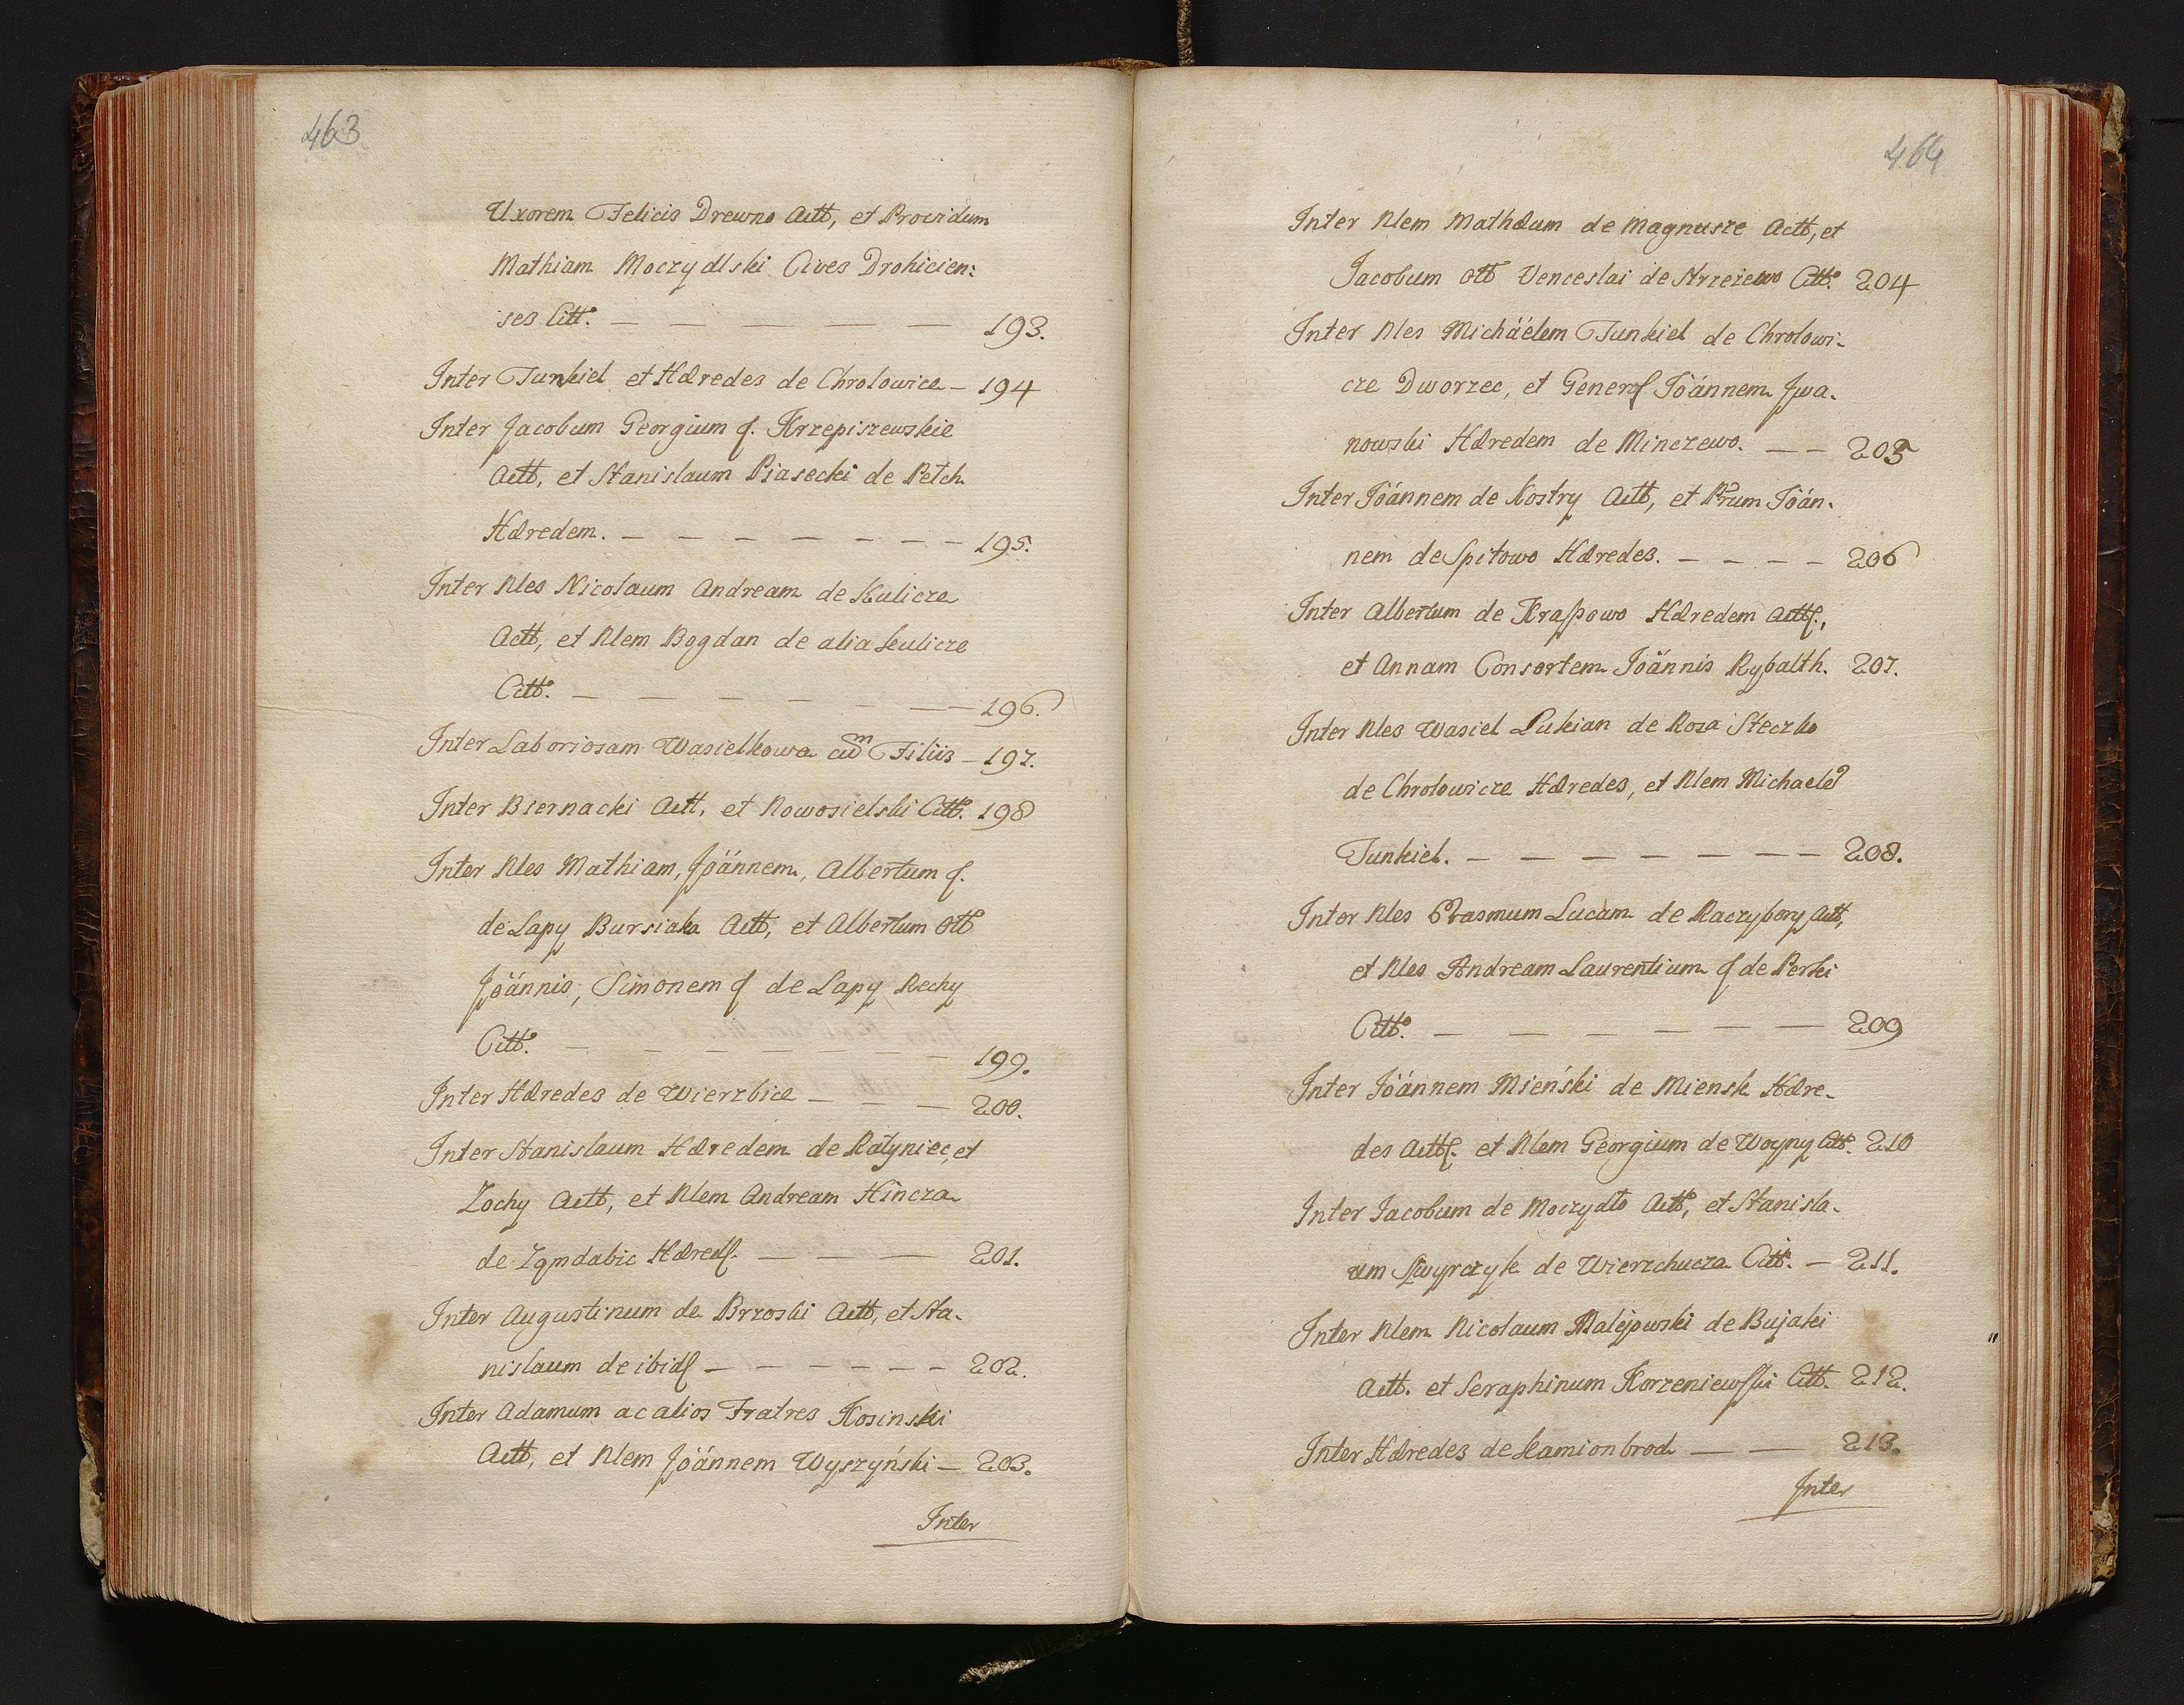 463
Uxorem Felicis Drewno Actt, et Providum
Mathiam Moczydlski Cives Drohicien:
ses Citt. — — — — — — 193.
Inter Tunkiel et Hæredes de Chrolowice — 194
Inter Jacobum Georgium q. Krzepiszewskie
Actt, et Stanislaum Piasecki de Petch
Hæredem. — — — — — — — 195.
Inter Nles Nicolaum Andream de Kulicze
Actt, et Nlem Bogdan de alia Kulicze
Citt. — — — — — — 196.
Inter Laboriosam Wasielkowa cum Filiis — 197.
Inter Biernacki Actt, et Nowosielski Citt. 198
Inter Nles Mathiam, Joännem, Albertum q.
de Lapy Bursiaka Actt, et Albertum ott
Joännis, Simonem q de Lapy Rechy
Citt. — — — — — — — 199.
Inter Hæredes de Wierzbice — — — 200.
Inter Stanislaum Hæredem de Ratyniec, et
Zochy Actt, et Nlem Andream Hincza
de Hæred. — — — 201.
Inter Augustinum de Brzoski Actt, et Sta-
nislaum de ibid — — — — — — 202.
Inter Adamum ac alios Fratres Kosinski
Actt, et Nlem Joännem Wyszyński — 203.
Inter
464
Inter Nlem Mathæum de Magnusze Actt, et
Jacobum ott Venceslai de Strzeżewo Citt. 204
Inter Nles Michäëlem Tunkiel de Chrolowi-
cze Dworzec, et Gener Joännem Jwa-
nowski Hæredem de Minczewo. — — 205
Inter Joännem de Kostry Actt, et Prum Joän-
nem de Spitowo Hæredes. — — — — 206
Inter Albertum de Krassowo Hæredem Actt,
et Annam Consortem Joännis Rybalth. 207.
Inter Nles Wasiel Lukian de Roza Steczko
de Chrolowicze Hæredes, et Nlem Michaele
Tunkiel. — — — — — — — 208.
Inter Nles Erasmum Lucam de Raczybory Actt,
et Nles Andream Laurentium q de Perki
Citt. — — — — — — 209
Inter Joännem Mieński de Miensk Hære-
des Actt. et Nlem Georgium de Woyny Citt. 210
Inter Jacobum de Moczydło Actt, et Stanisla-
um de Wierzchucza Citt. — 211.
Inter Nlem Nicolaum Malejowski de Bujaki
Actt. et Seraphinum Korzeniewski Citt. 212.
Inter Hæredes de Kamionbrod — — 213.
Inter